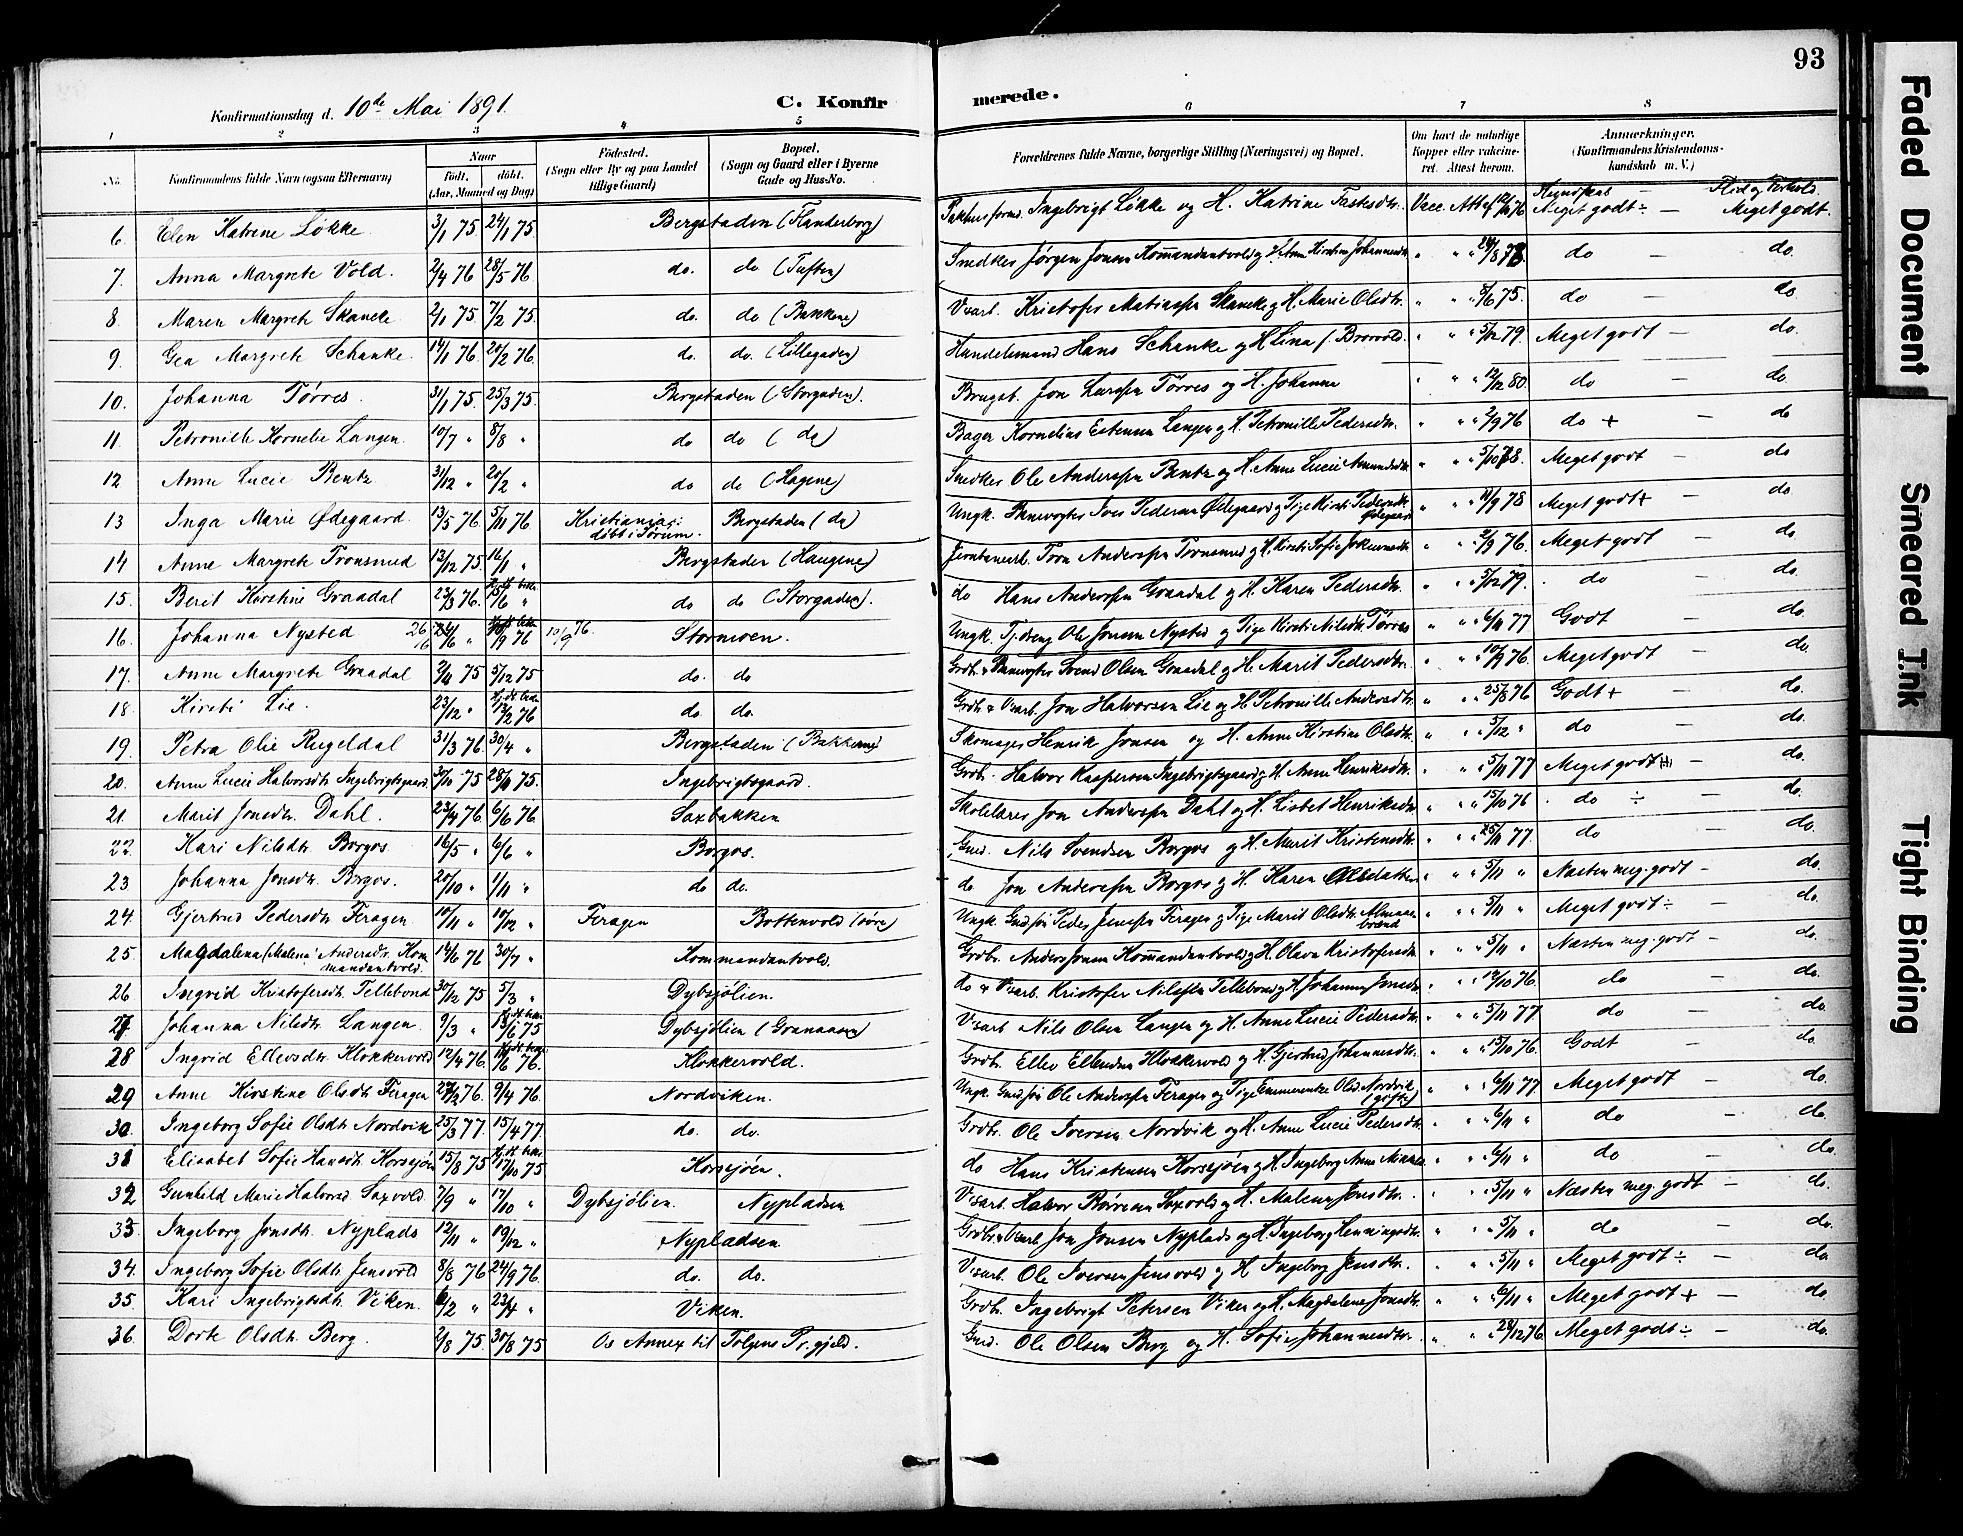 93
Konfirmationsdag d. 10de Mai 1891.
C. Konfirmerede.
1 2 3 4 5 6 7 8
No. Konfirmandens fulde Navn (ogsaa Efternavn)
Naar født, døbt. (Aar, Maaned og Dag)
Fødested. (Sogn eller By og paa Landet tillige Gaard)
Bopæl. (Sogn og Gaard eller i Byerne Gade og Hus-No.
Forældrenes fulde Navne, borgerlige Stilling (Næringsvei) og Bopæl.
Om havt de naturlige Kopper eller vaccineret. Attest herom.
Anmærkninger. (Konfirmandens Kristendomskundskab m. V.)
Kundskab — Flid og Forhold.
6. Elen Katrine Løkke 3/1 75 24/1 75. Bergstaden (Flanderborg) Pakhusform. Ingebrigt Løkke og H. Katrine Fastesdtr. Vacc. Att. 76 Meget godt ÷ — Meget godt.
7. Anna Margrete Vold. 2/4 76 28/5 76 do. do (Tuften) Snedker Jørgen Jonsen Kommandantvold og H. Anne Kirstine Johannesdtr. " " " 24/8 78 do — do.
8 Maren Margrete Skancke 2/1 75. 7/2 75. do. do (Bakkene) Varb. Kristofer Matiassen Skancke og H. Marie Olsdtr. " " " 8/6 75. do — do.
9. Gea Margrete Schanke 14/1 76 20/2 76. do. do. (Lillegaden) Handelsmand Hans Schanke og H. Lina f. Brovold. " " " 5/12 79 Meget godt — do.
10. Johanna Tørres. 31/1 75. 25/3 75. Bergstaden (Storgaden). Brugsb. Jon Larssen Tørres og H. Johanna " " " 12/12 80. do — do.
11. Petronille Kornelie Langen. 10/7 " 8/8 " do do (do) Bager Kornelius Estensen Langen og H. Petronille Pedersdtr. " " " 2/9 76 do + — do
12 Anne Lucie Bentz 31/12 " 20/2 " do do (Hagene) Snedker Ole Anderssen Bentz og H. Anne Lucie Amundsdtr. " " " 5/10 78. Meget godt — do
13 Inga Marie Ødegaard. 13/5 76. 5/11 76 Kristiania; døbt i Sørum. Bergstaden (do) Ungk. Banevogter Iver Pedersen Ødegaard og Pige Kirsti Pedersdtr. Ødegaard " " " 11/9 78 Meget godt + — do
14 Anne Margrete Tronsmed 13/12 75. 16/1 " Bergstaden (Haugene) Jernbanearb. Tron Anderssen Tronsmed og H. Kirsti Sofie Johannesdtr. " " " 2/9 76. Meget godt — do.
15. Berit Kirstine Graadal 23/3 76. 5/6 " do do (Storgaden). do Hans Anderssen Graadal og H. Karen Pedersdtr. " " " 5/12 79. do — do.
16. Johanna Nysted 26/6 " 10/9 76 10/9 76. Stormoen. Ungk. Tj.dreng Ole Jonsen Nysted og Pige Kirsti Nilsdtr. Tørres " " " 6/11 77 Godt — do.
17. Anne Margrete Graadal 2/11 75 5/12 75 do. do Grdb. Banevogter Svend Olsen Graadal og H. Marit Pedersdtr. " " " 10/9 76. Meget godt — do.
18 Kirsti Lie. 23/12 " 13/2 76 do. do. Grdb. & Varb. Jon Halvorsen Lie og H. Petronille Andersdtr. " " " 25/8 76 Godt + — do.
19. Petra Olie Rugeldal 31/3 76. 30/4 " Bergstaden (Bakkene) Skomager Henrik Jonsen og H. Anne Kirstine Olsdtr. " " " 5/12 " do — do.
20. Anne Lucie Halvorsdtr. Ingebrigtsgaard 3/10 75 28/11 75. Ingebrigtsgaard. Grdbr. Halvor Kaspersen Ingebrigtsgaard og H. Anne Henriksdtr. " " " 5/11 77 Meget godt — do.
21. Marit Jonsdtr. Dahl. 23/4 76 6/6 76 Saxbakken Skolelærer Jon Anderssen Dahl og H. Lisbet Henriksdtr. " " " 15/10 76 do ÷ — do.
22. Kari Nilsdtr. Borgos 16/5 " 6/6 " Borgos. Gmd. Nils Svendsen Borgos og H. Marit Kristensdtr. " " " 25/11 77. do — do.
23. Johanna Jonsdtr. Borgos. 20/10 " 1/11 " do do. do. Jon Anderssen Borgos og H. Karen " " " 5/11 " Næsten meg. godt — do.
24. Gjertrud Pedersdtr. Feragen 10/11 " 10/12 " Feragen Bottenvold (søre) Ungk. Gmdssøn Peder Jenssen Feragen og Pige Marit Olsdtr. " " " 5/11 " Meget godt ÷ do.
25. Magdalena (Malena) Andersdtr. Kommandantvold. 14/6 76 30/7 " Kommandantvold. Grdbr. Anders Jonsen Kommandantvold og H. Olava Kristofersdtr. " " " 5/11 " Næsten meg. godt — do.
26 Ingrid Kristofersdtr. Tellebond 30/12 75 5/3 " Dybsjølien. do & Varb. Kristofer Nilssen Tellebond og H. Johanna Jonsdtr. " " " 19/10 76. do — do.
27 Johanna Nilsdtr. Langen. 9/3 " 13/6 75 Dybsjølien (Granaasen) Varb Nils Olsen Langen og H. Anne Lucie Pedersdtr. " " " 5/11 77 do — do
28 Ingrid Ellevsdtr. Klokkervold 12/4 76. 11/6 76. Klokkervold. Grdbr. Ellev Ellendsen Klokkervold og H. Gjertrud Johannesdtr. " " " 15/10 76. Godt — do.
29 Anne Kirstine Olsdtr. Feragen 27/2 76. 9/4 76. Nordviken. Ungk. Gmdssøn Ole Anderssen Feragen og Pige Emmerentze Olsd. Nordvik (gift) " " " 6/11 77 Meget godt — do.
30. Ingeborg Sofie Olsdtr. Nordvik 25/3 77. 15/4 77 do. do. Grdbr. Ole Iversen Nordvik og H. Anne Lucie Pedersdtr. " " " 6/11 " do — do.
31 Elisabet Sofie Hansdtr. Korsjøen 15/8 75 17/10 75 Korsjøen. do Hans Kristensen Korsjøen og H. Ingeborg Anne " " " 6/11 " do — do.
32 Gunhild Marie Halvorsd. Saxvold. 7/9 " 17/10 " Dybsjølien. Nypladsen Varb. Halvor Børresen Saxvold og H. Malena Jonsdtr. " " " 5/11 " Næsten meg. godt — do.
33. Ingeborg Jonsdtr. Nyplads 12/11 " 19/12 " Nypladsen. Grdbr. & Varb. Jon Jonsen Nyplads og H. Ingeborg Henningsdtr. " " " 5/11 " do — do.
34. Ingeborg Sofie Olsdtr. Jensvold 8/8 76 24/9 76. do. do. Varb. Ole Iversen Jensvold og H. Ingeborg Jensdtr. " " " 5/11 " Meget godt ÷ — do.
35. Kari Ingebrigtsdtr. Viken. 6/2 " 23/4 " Viken. Grdbr. Ingebrigt Petersen Viken og H. Magdalena Jonsdtr. " " " 6/11 " Meget godt + — do.
36. Dorte Olsdtr. Berg. 2/8 75. 30/8 75 Os Annex til Tolgens Pr.gjeld. Gmd. Ole Olsen Berg og H. Sofie Johannesdtr. " " " 28/12 76. Meget godt ÷ — do.
Faded Document
Smeared Ink
Tight Binding